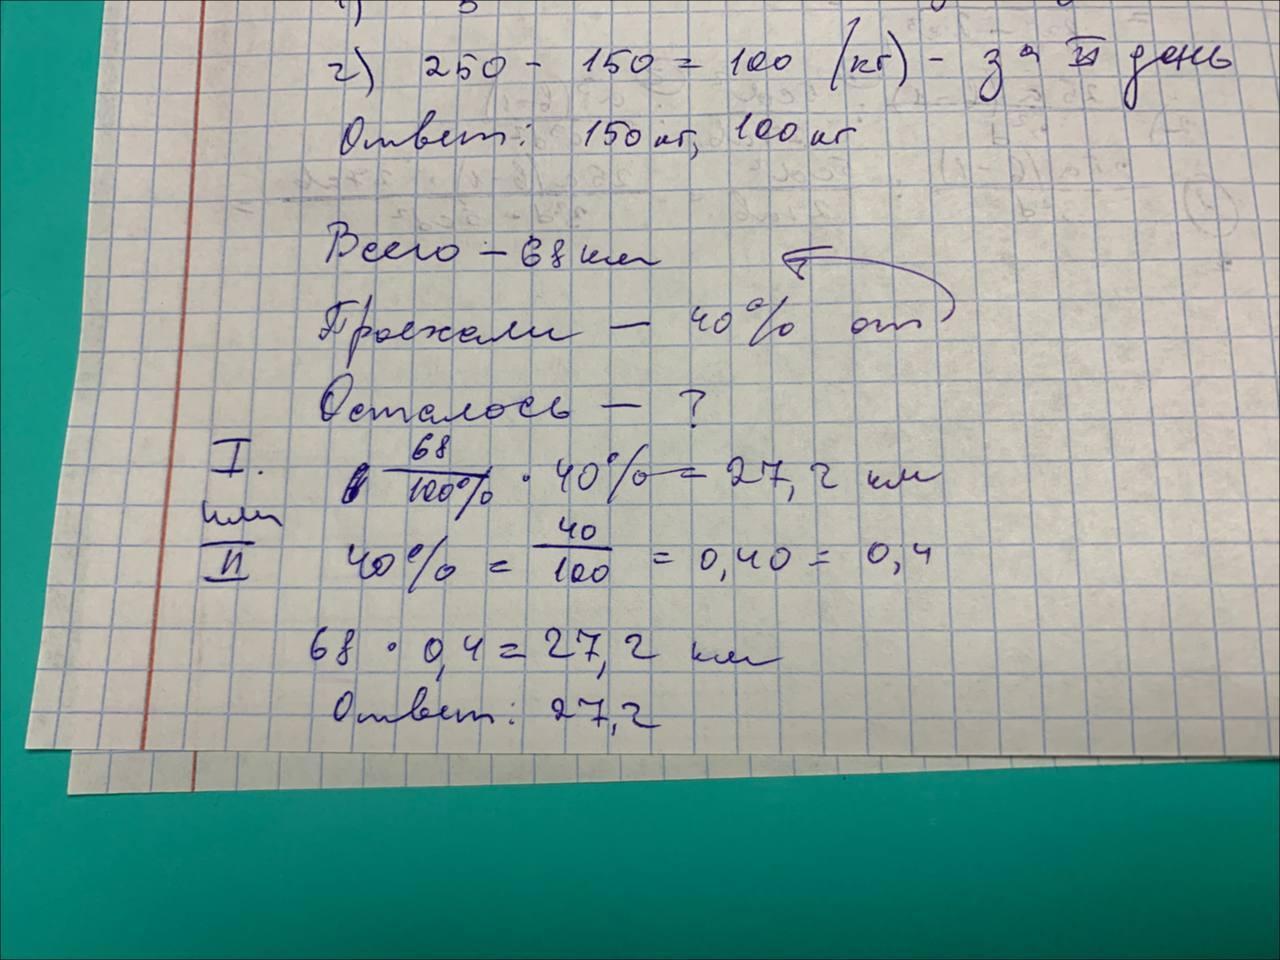 2) 250 - 150 = 100 (кг) - за II день
Ответ: 150 кг, 100 кг
Всего - 68 км
Проехали - 40% от
Осталось - ?
I. 68/100% · 40% = 27,2 км
или
II 40% = 40/100 = 0,40 = 0,4
68 · 0,4 = 27,2 км
Ответ: 27,2